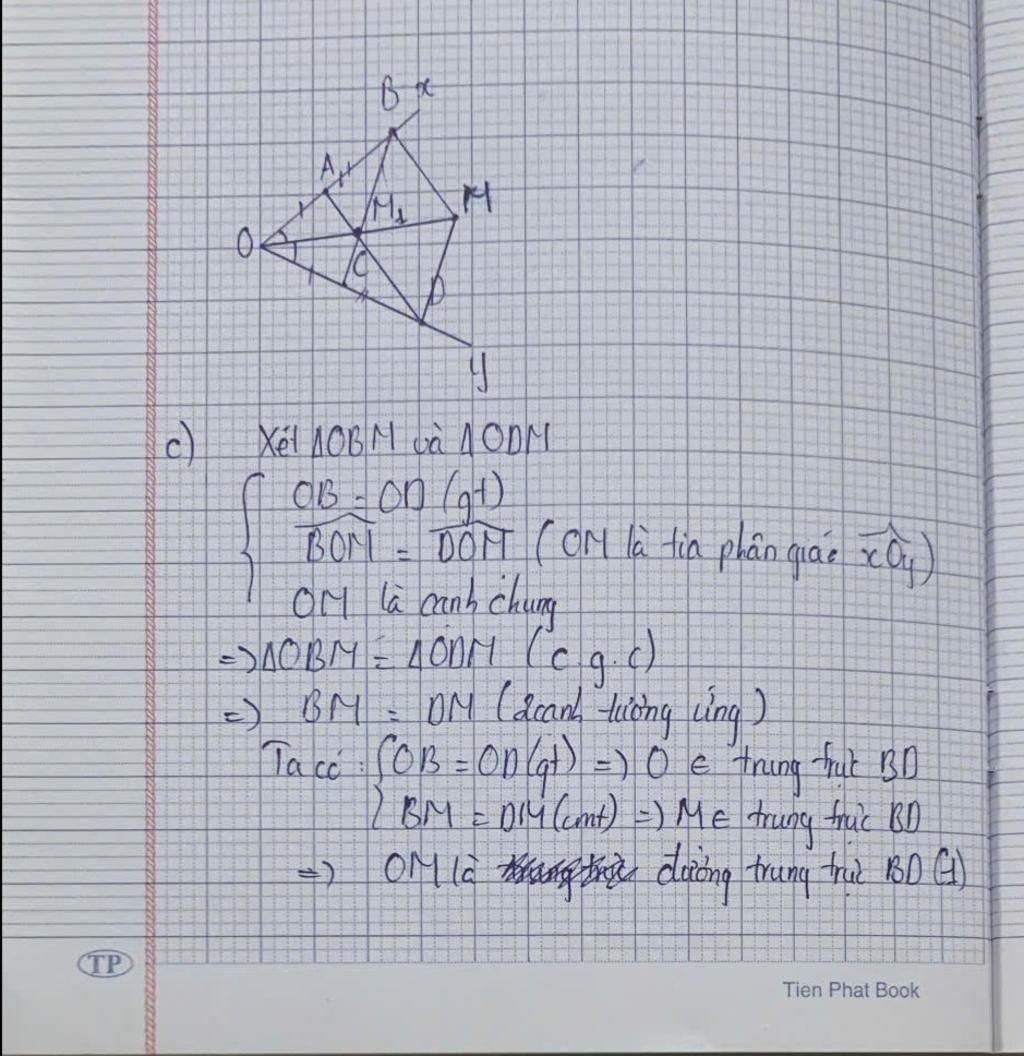 B x
A
M₁
M
O
C
D
y
c) Xét ΔOBM và ΔODM
OB = OD (gt)
BOM = DOM (OM là tia phân giác xOy)
OM là cạnh chung
=> ΔOBM = ΔODM (c.g.c)
=> BM = DM (2 cạnh tương ứng)
Ta có: { OB = OD (gt) => O ∈ trung trực BD
BM = DM (cmt) => M ∈ trung trực BD
=> OM là đường trung trực BD (1)
TP
Tien Phat Book